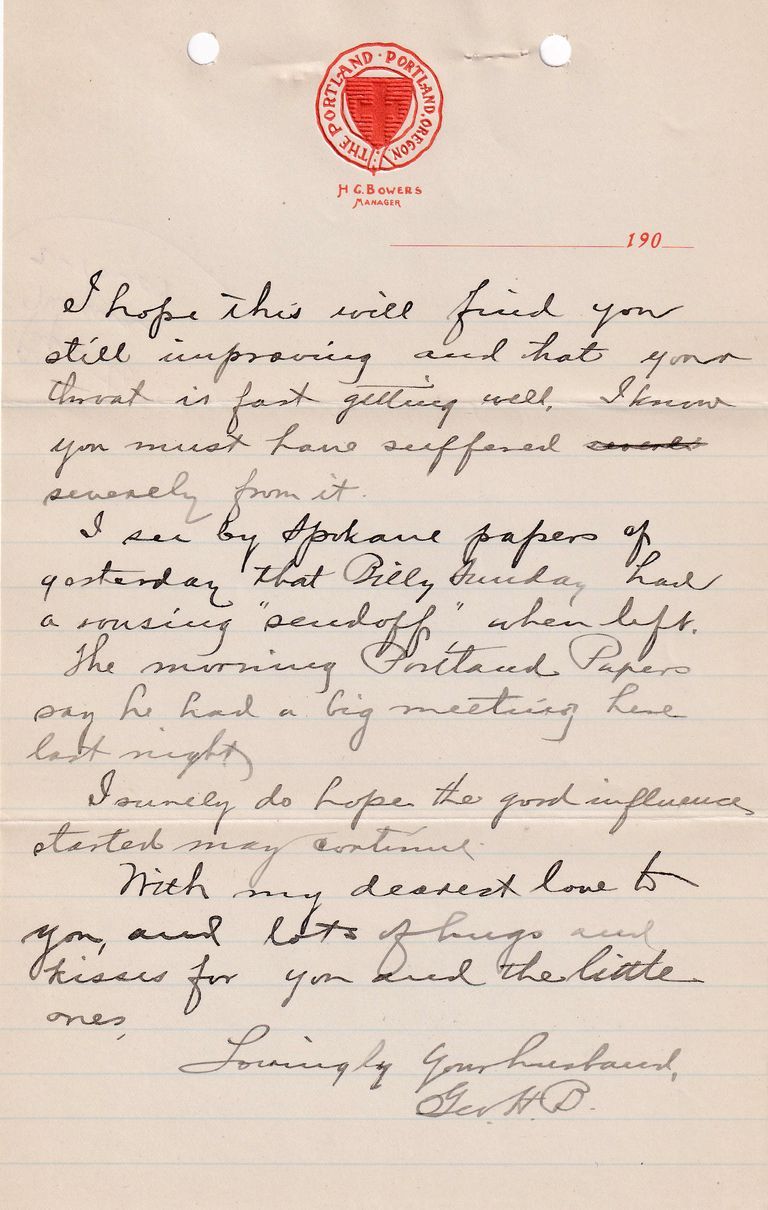 THE PORTLAND · PORTLAND, OREGON.
H C. BOWERS
MANAGER
190
I hope this will find you
still improving and that your
throat is fast getting well. I know
you must have suffered
severely from it.
I see by Spokane papers of
yesterday that Billy Sunday had
a rousing "sendoff," when left.
The morning Portland Papers
say he had a big meeting here
last night,
I surely do hope the good influences
started may continue.
With my dearest love to
you, and lots of hugs and
kisses for you and the little
ones,
Lovingly Your husband,
Geo. H. B.